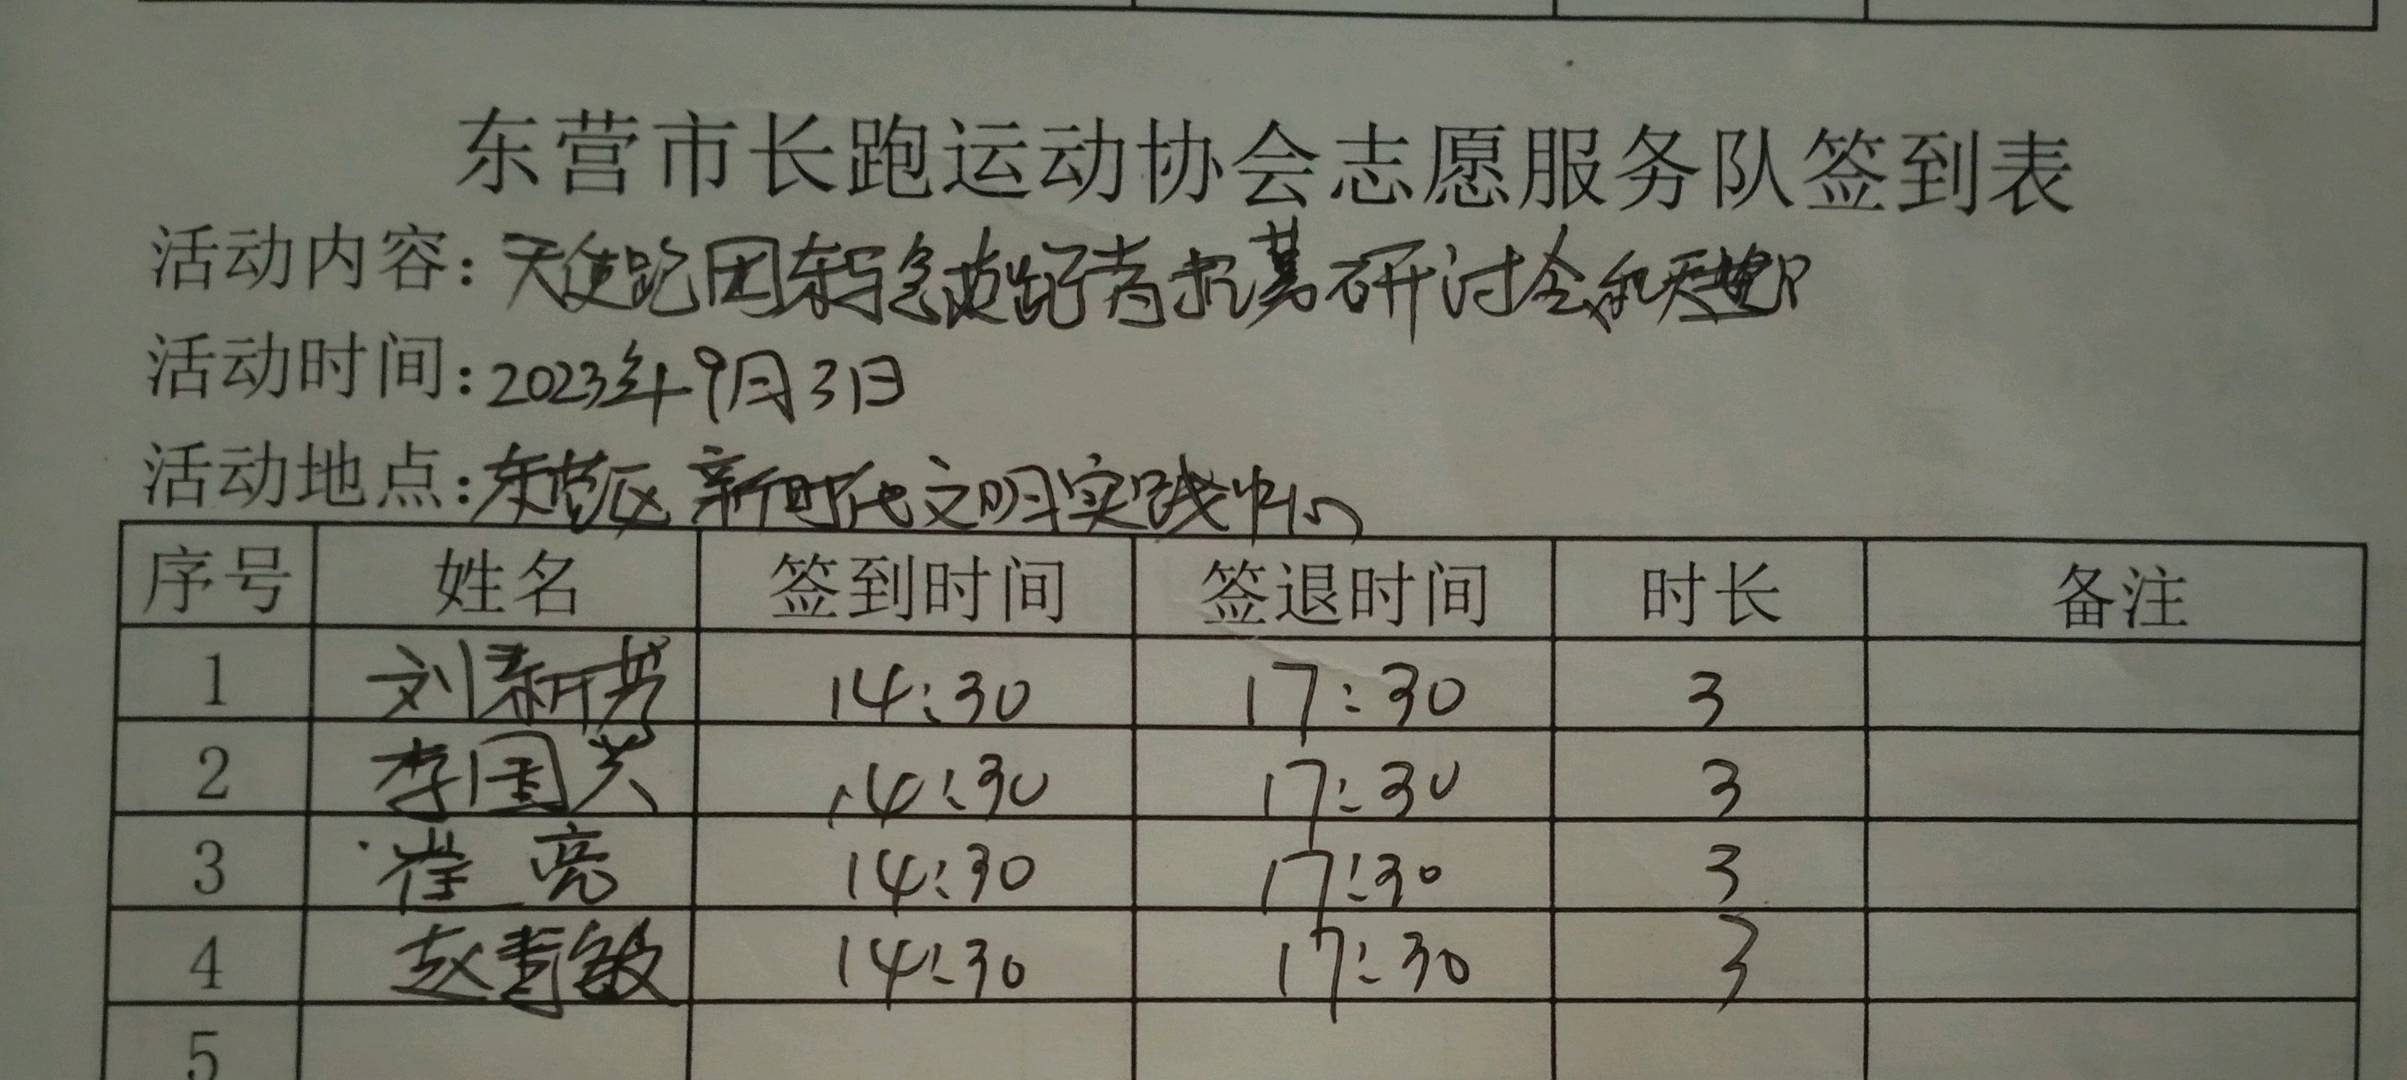 东营市长跑运动协会志愿服务队签到表
活动内容：天使跑团东营急救跑者招募研讨会和天使
活动时间：2023年9月3日
活动地点：东营区新时代文明实践中心
序号 姓名 签到时间 签退时间 时长 备注
1 刘新芳 14:30 17:30 3
2 李国芝 14:30 17:30 3
3 崔亮 14:30 17:30 3
4 赵青敏 14:30 17:30 3
5